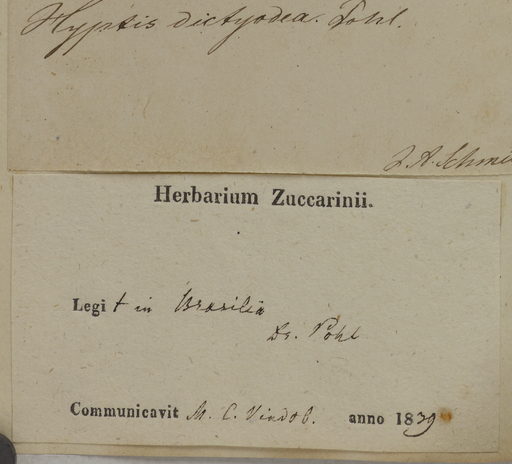 Hyptis dictyodea. Pohl.
J. A. Schmi
Herbarium Zuccarinii.
Legit in Brasilia
Dr. Pohl
Communicavit M. C. Vindob. anno 1839